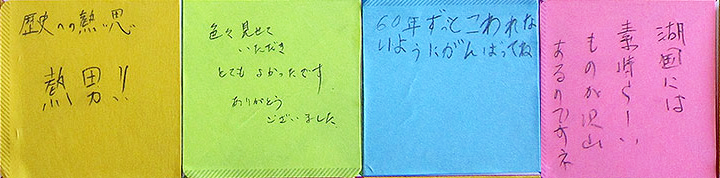 歴史への熱い思い
熱男!!
色々見せて
いただき
とてもよかったです
ありがとう
ございました
60年ずっとこわれな
いようにがんばってね
湖西には
素晴らしい
ものが沢山
あるのですネ